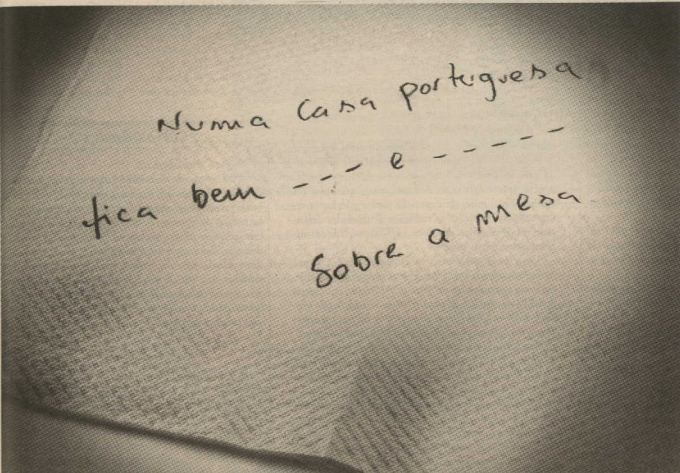 Numa casa portuguesa
fica bem --- e -----
sobre a mesa